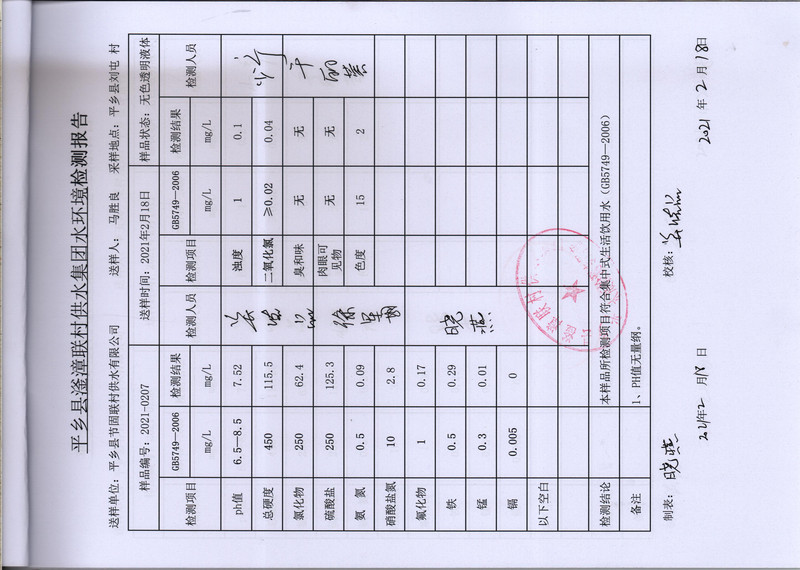 平乡县滏漳联村供水集团水环境检测报告
送样单位：平乡县节固联村供水有限公司 送样人： 马胜良 采样地点：平乡县刘屯 村
样品编号：2021-0207 送样时间：2021年2月18日 样品状态：无色透明液体
检测项目 GB5749—2006 检测结果 检测人员 检测项目 GB5749—2006 检测结果 检测人员
mg/L mg/L mg/L mg/L
ph值 6.5—8.5 7.52 浊度 1 0.1
总硬度 450 115.5 二氧化氯 ≥0.02 0.04
氯化物 250 62.4 臭和味 无 无
硫酸盐 250 125.3 肉眼可见物 无 无
氨 氮 0.5 0.09 色度 15 2
硝酸盐氮 10 2.8
氟化物 1 0.17
铁 0.5 0.29 晓
锰 0.3 0.01 燕
镉 0.005 0
以下空白
检测结论 本样品所检测项目符合集中式生活饮用水（GB5749—2006）
备注 1、PH值无量纲。
制表： 晓燕 校核：
2021年2 月18 日 2021 年 2 月 18日